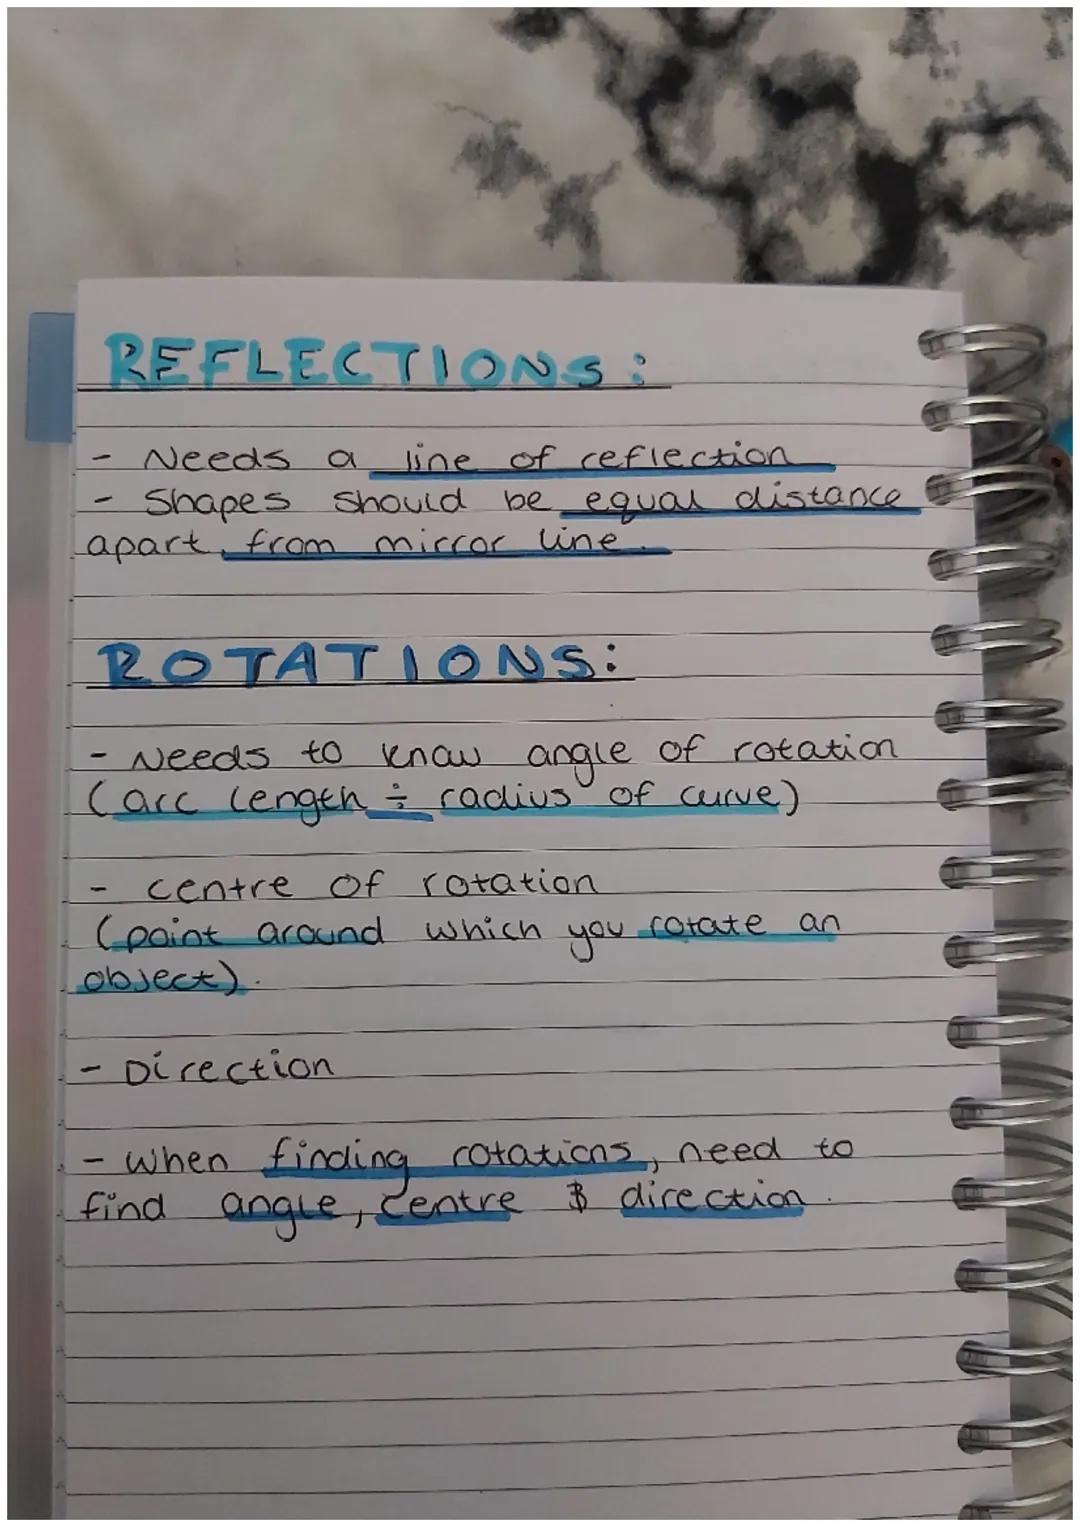 REFLECTIONS:
- Needs a line of reflection
- Shapes should be equal distance
apart from mirror line.
ROTATIONS:
- Needs to know angle of rotation
(arc length ÷ radius of curve)
- centre of rotation
(point around which you rotate an
object).
- Direction
- when finding rotations, need to
find angle, centre & direction.